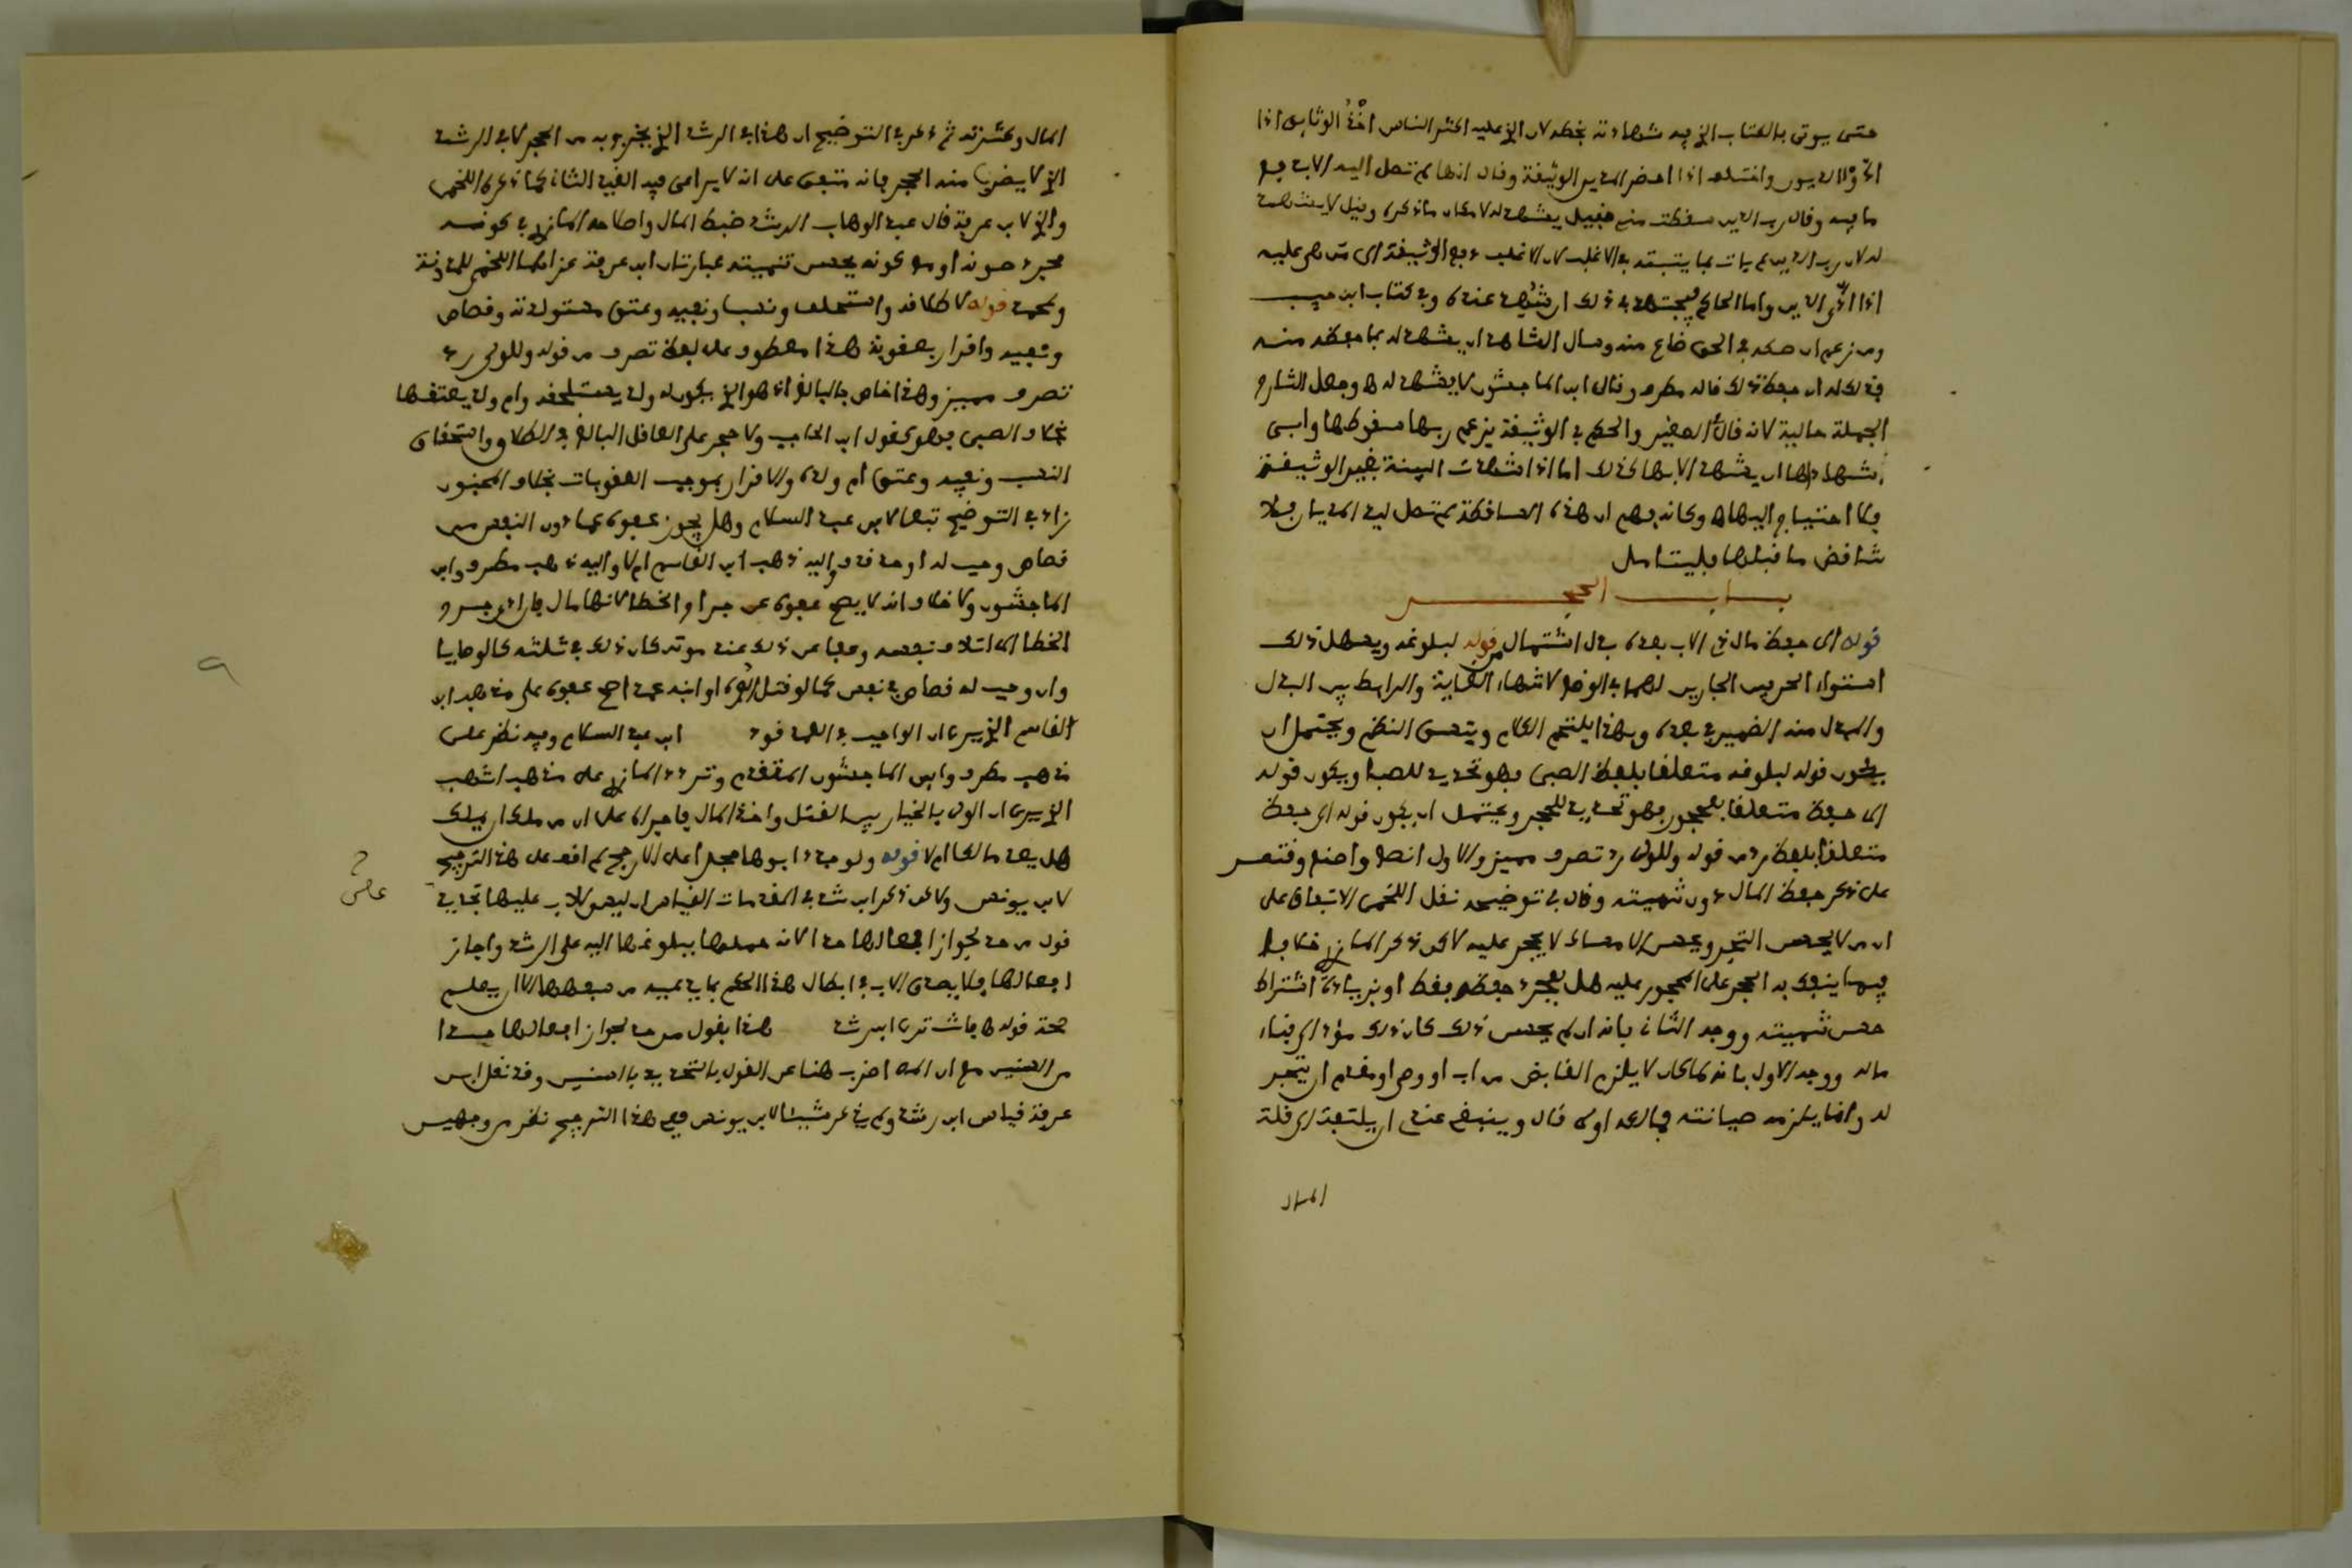 حتى يوتى بالكتاب الذي فيه شهادته بخطه لان الذي عليه اكثر الناس اخذ الوثايق اذا
ادوا الديون واختلف اذا احضر المدين الوثيقة وقال انها لم تصل اليه الا بدفع
ما فيه وقال رب الدين سقطت مني فقيل يشهد له لامكان ما ذكره وقيل لا يشهد
له لان رب الدين لم يات بما يشبه في الاغلب لان الاغلب دفع الوثيقة الى من هي عليه
اذا ادى الدين واما الحاكم فيجتهد في ذلك ان شهد عنده وفي كتاب ابن حبيب
ومن زعم ان صكه في الحق ضاع منه وسال الشاهد ان يشهد له بما حفظه منه
فذلك له ان حفظ ذلك قاله مطرف وقال ابن الماجشون لا يشهد له وجعل الشارح
الجملة حالية لانه قال الصغير والحكم في الوثيقة يزعم ربها سقوطها وابى
شهادها ان يشهد الا بها كذلك اما اذا شهدت البينة بغير الوثيقة
فلا احتياج اليها وكانه فهم ان هذه الساقطة لم تصل ليد المديان فلا
تناقض ما قبلها فليتامل
بـاب الحجر
قوله الى حفظ مال ذي الاب بعده بدل اشتمال من قوله لبلوغه ويسهل ذلك
استواء الحرفين الجارين لهما في الوضع لانتهاء الغاية والرابط بين البدل
والمبدل منه الضمير في بعده وبهذا يلتئم الكلام ويتسق النظم ويحتمل ان
يكون قوله لبلوغه متعلقا بلفظ الصبى فهو تحديد للصبا ويكون قوله
الى حفظ متعلقا بمحجور فهو تحديد للحجر ويحتمل ان يكون قوله الى حفظ
متعلقا بلفظ رد من قوله وللولى رد تصرف مميز والاول انصع واصنع واقتصر
على ذكر حفظ المال دون تنميته وقال في توضيحه نقل اللخمي الاتفاق على
ان من لا يحسن التجر ويحسن الامساك لا يحجر عليه لاكن ذكر المازري خلافا
فيما ينفك به الحجر على المحجور عليه هل بمجرد حفظه فقط او بزيادة اشتراط
حسن تنميته ووجه الثاني بانه ان لم يحسن ذلك كان ذلك مؤد الى فناء
ماله ووجه الاول بانه كما كان لا يلزم القابض من اب او وصي او مقدم ان يتجر
له وانما يلزمه صيانته فمالكه اولى قال وينبغي عندي ان يلتفت الى قلة
المال
المال وكثرته ثم ذكر في التوضيح ان هذا في الرشد الذي يخرج به من الحجر لا في الرشد
الذي لا يضرب منه الحجر فانه متفق على انه لا يراعى فيه القيد الثاني كما ذكره اللخمي
والذي لابن عرفة قال عبد الوهاب الرشد ضبط المال واصلاحه المازري في كونه
مجرد صونه او مع كونه يحسن تنميته عبارتان ابن عرفة عزاهما اللخمي للمدونة
ومحمد قوله لا طلاقه واستلحاق ونسب ونفيه وعتق مستولدته وقصاص
ونفيه واقرار بعقوبة هذا معطوف على لفظ تصرف من قوله وللولي رد
تصرف مميز وهذا خاص بالبالغ اذ هو الذي يكون له ولد يستلحقه وام ولد يعتقها
بخلاف الصبي فهو كقول ابن الحاجب ولا حجر على العاقل البالغ في الطلاق واستلحاق
النسب ونفيه وعتق ام ولده والاقرار بموجب العقوبات بخلاف المجنون
زاد في التوضيح تبعا لابن عبد السلام وهل يجوز عفوه عما دون النفس من
قصاص وجب له او حد قذف واليه ذهب ابن القاسم ام لا واليه ذهب مطرف وابن
الماجشون ولا خلاف انه لا يصح عفوه عن جراح الخطا لانها مال فان ادى جرح
الخطا الى اتلاف نفسه وعفا عن ذلك عند موته كان ذلك في ثلثه كالوصايا
وان وجب له قصاص في نفس كما لو قتل ابوه او ابنه عمدا صح عفوه على مذهب ابن
القاسم الذي يرى ان الواجب في العمد قود ابن عبد السلام وفيه نظر على
مذهب مطرف وابن الماجشون المتقدم وتردد المازري على مذهب اشهب
الذي يرى ان الولي بالخيار بين القتل واخذ المال فاجراه على ان من ملك ان يملك
هل يعد مالكا ام لا قوله ولو جدد ابوها حجرا على الارجح لم اقف على هذا الترجيح
لابن يونس ولاكن ذكر ابن رشد في المقدمات القياس ان ليس للاب عليها تجديد
قول من حد لجواز افعالها حدا لانه حملها ببلوغها اليه على الرشد واجاز
افعالها فلا يصدق الاب في ابطال هذا الحكم بما يدعيه من سفهها الا ان يعلم
صحة قوله هـ فاشتد من ابن رشد هذا بقول من حد لجواز افعالها حدا
من السنين مع ان المص اضرب هنا عن القول بالتحديد بالسنين وقد نقل ابن
عرفة قياس ابن رشد ولم يذكر شيئا لابن يونس ففي هذا الترجيح نظر من وجهين